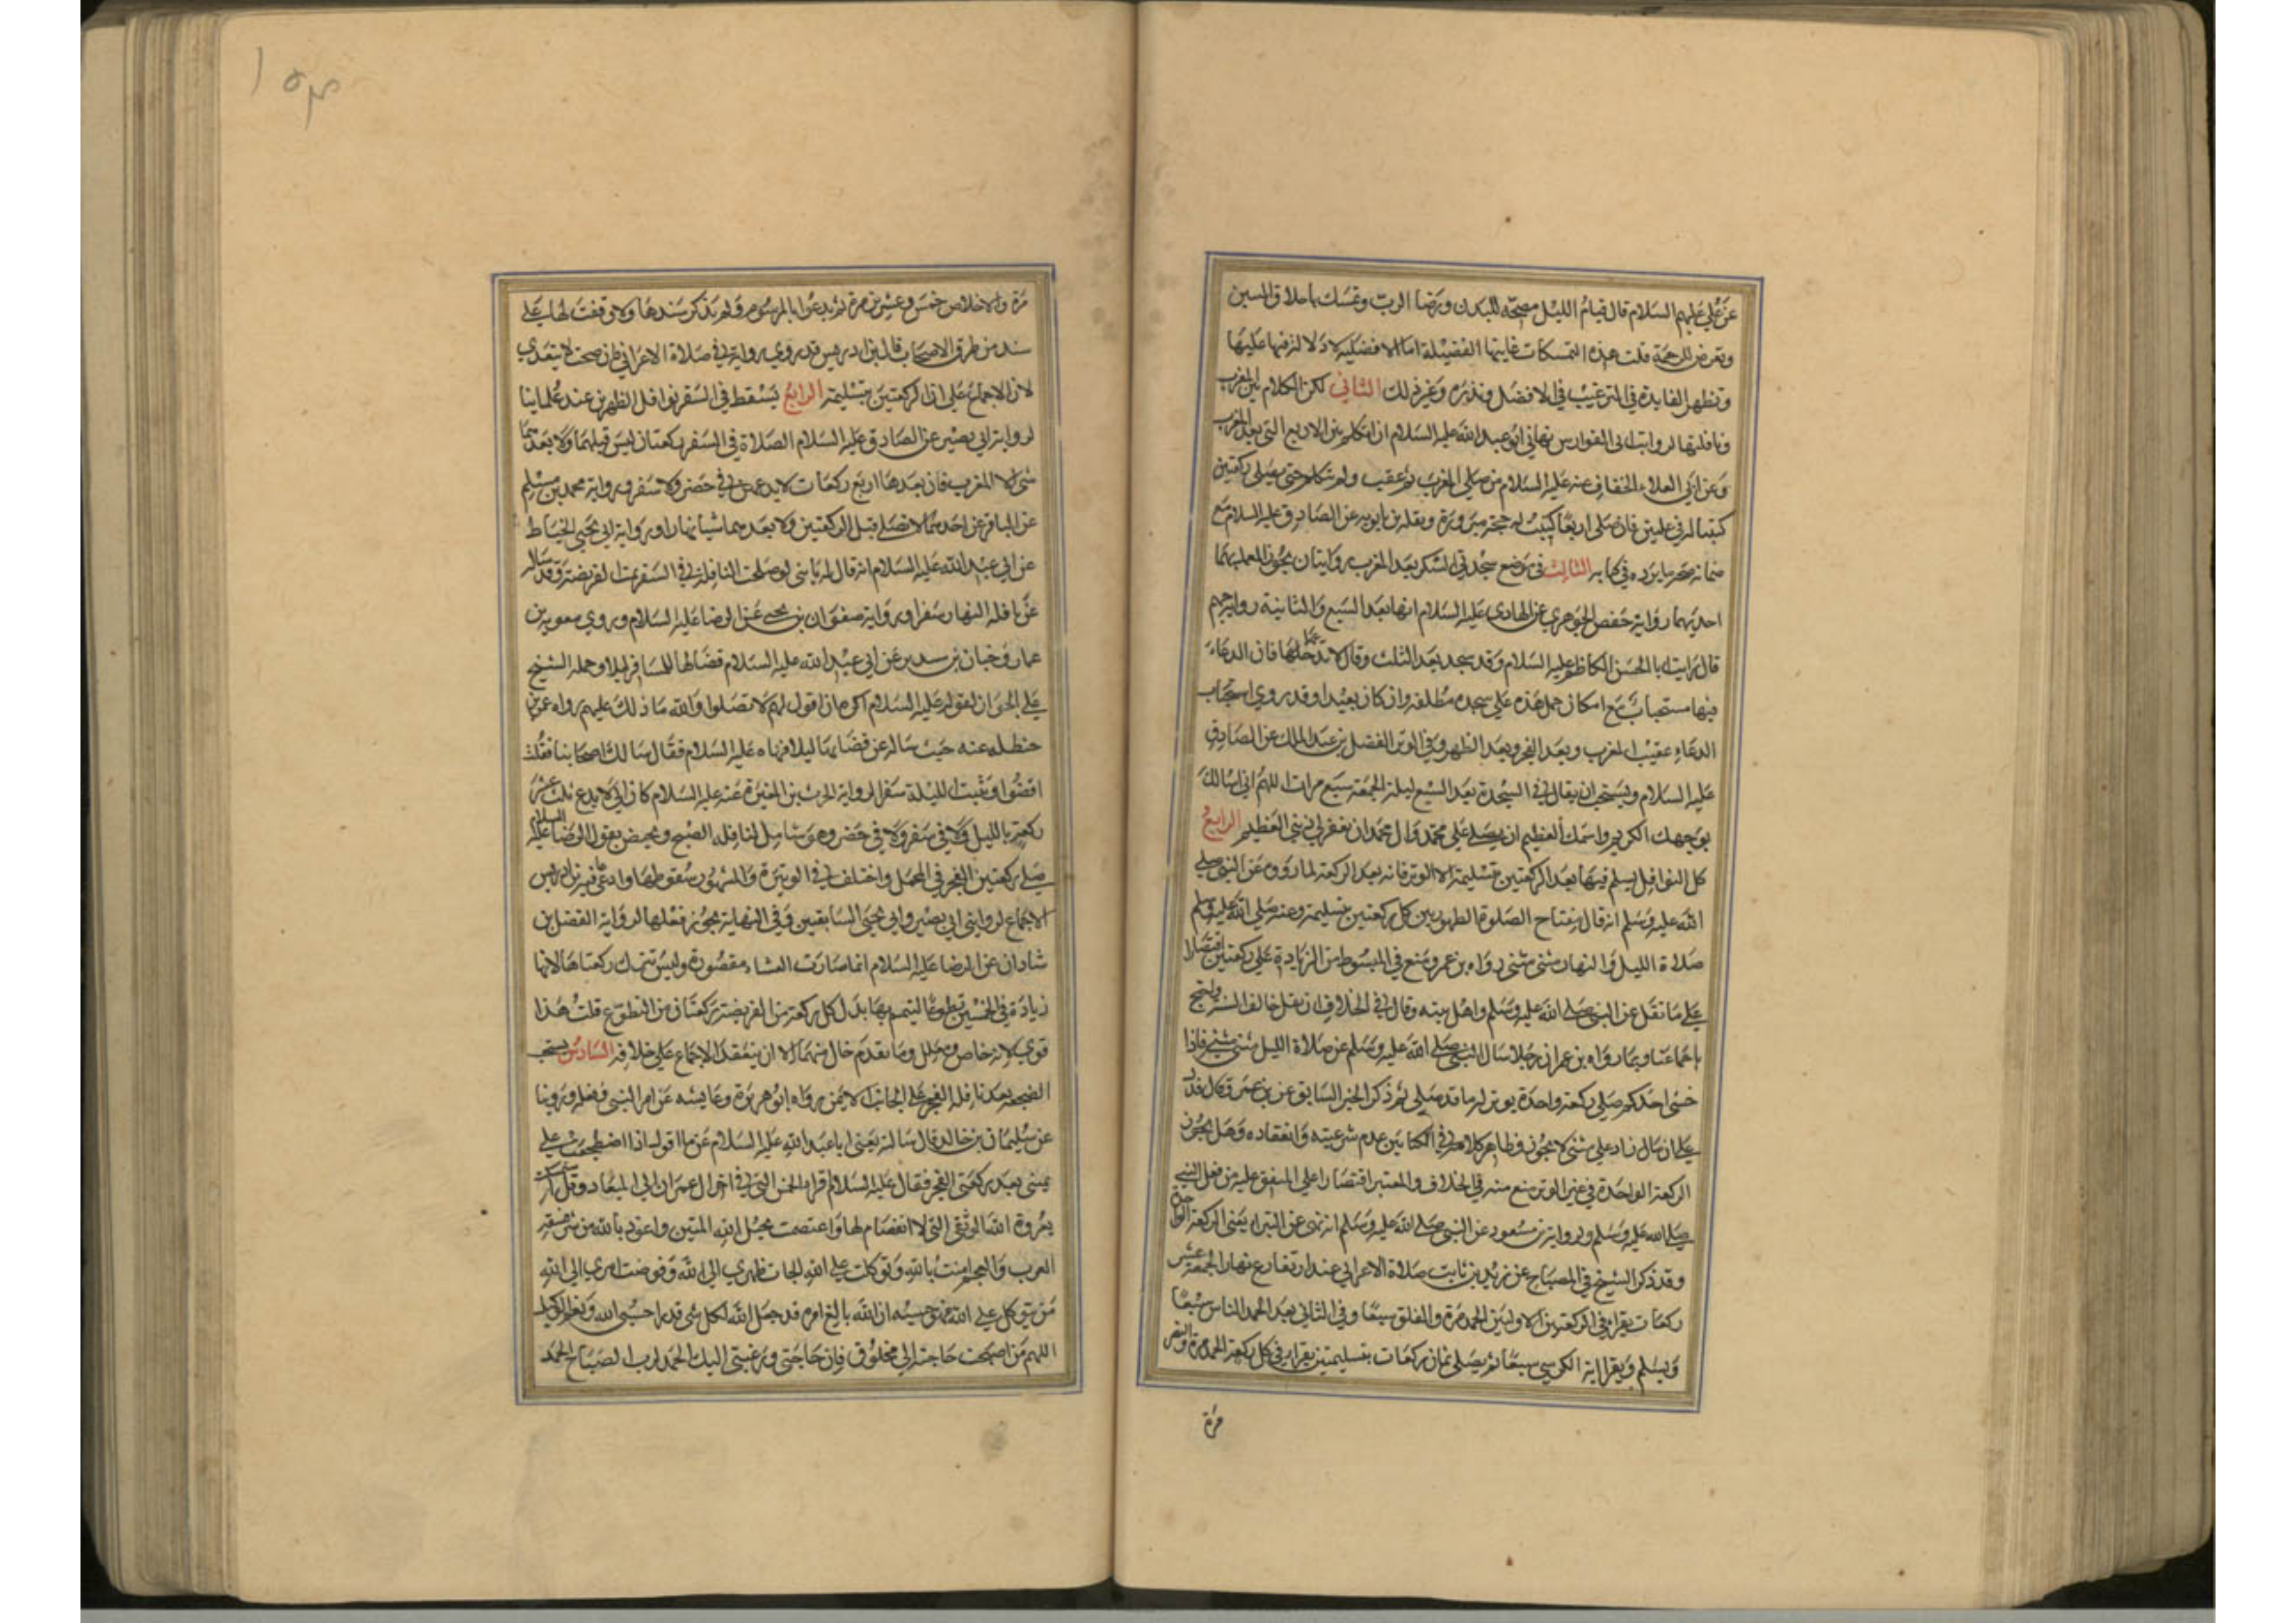 عن علي عليهم السلام قال قيام الليل مصحه للبدن ورضا الرب وتمسك باخلاق النبيين
وتعرض للرحمة قلت هذه التمسكات غايتها الفضيلة اما الافضلية فلا دلالة فيها عليها
وتظهر الفايدة في الترغيب في الافضل ونذره وغير ذلك الثاني لكن الكلام بين المغرب
ونافلتها لرواية ابي الفوارس نهاني ابو عبد الله عليه السلام ان اتكلم بين الاربع التي بعد المغرب
وعن ابي العلاء الخفاف عنه عليه السلام من صلى المغرب ثم عقب ولم يتكلم حتى يصلي ركعتين
كتبتا له في عليين فان صلى اربعا كتبت له حجة مبرورة ونقله بن بابويه عن الصادق عليه السلام مع
ضمانه صحة ما يرده في كتابه الثالث في موضع سجدتي الشكر بعد المغرب روايتان يجوز العمل بهما
احديهما رواية حفص الجوهري عن الهادي عليه السلام انها بعد السبع والثانية رواية جهم
قال رايت ابا الحسن الكاظم عليه السلام وقد سجد بعد الثلث وقال لا تدعها فان الدعاء
فيها مستجاب مع امكان حمل هذه على سجدة مطلقه وان كان بعيدا وقد روي استجاب
الدعاء عقيب المغرب وبعد الفجر وبعد الظهر وفي الوتر الفضل بن عبد الملك عن الصادق
عليه السلام ويستحب ان يقال في السجدة بعد السبع ليلة الجمعة سبع مرات اللهم اني اسالك
بوجهك الكريم واسمك العظيم ان تصلي على محمد وال محمد وان تغفر لي ذنبي العظيم الرابع
كل النوافل يسلم فيها بعد الركعتين بتسليمة الا الوتر فانه بعد الركعة لما روو عن النبي صلى
الله عليه وسلم انه قال مفتاح الصلوة الطهور بين كل ركعتين بتسليمة وعنه صلى الله عليه وسلم
صلاة الليل والنهار مثنى مثنى رواه بن عمر ومنع في المبسوط من الزيادة على ركعتين اقتصارا
على ما نقل عن النبي صلى الله عليه وسلم واهل بيته وقال في الخلاف ان نقل خالف السنة واحتج
باجماعنا وبما رواه بن عمر ان رجلا سال النبي صلى الله عليه وسلم عن صلاة الليل مثنى مثنى فاذا
خشي احدكم صلى ركعة واحدة يوتر له ما قد صلى ثم ذكر الخبر السابق عن بن عمر وقال فدل
على ان ما زاد على مثنى لا يجوز وظاهر كلامه في الكتابين عدم شرعيته وانعقاده وهل يجوز
الركعة الواحدة في غير الوتر منع منه في الخلاف والمعتبر اقتصارا على المتفق عليه من فعل النبي
صلى الله عليه وسلم ولرواية بن مسعود عن النبي صلى الله عليه وسلم انه نهى عن البتراء يعني الركعة الواحدة
وقد ذكر الشيخ في المصباح عن زيد بن ثابت صلاة الاعرابي عند ارتفاع نهار الجمعة عشر
ركعات يقراء في الركعتين الاوليين الحمد مرة والفلق سبعا وفي الثاني بعد الحمد الناس سبعا
ويسلم ويقرا اية الكرسي سبعا ثم يصلي ثمان ركعات بتسليمتين يقراء في كل ركعة الحمد مرة والنصر
مرة
مرة والاخلاص خمس وعشرين مرة ثم يدعوا بالمرسوم ولم يذكر سندها ولا وقفت لها على
سند من طرق الاصحاب قال بن ادريس قد روي رواية في صلاة الاعرابي فان صحت لا يتعدى
لان الاجماع على ان الركعتين بتسليمة الرابع يسقط في السفر نوافل الظهرين عند علماينا
لرواية ابي بصير عن الصادق عليه السلام الصلاة في السفر ركعتان ليس قبلهما ولا بعدهما
شي الا المغرب فان بعدها اربع ركعات لا يدعهن في حضر ولا سفر ورواية محمد بن مسلم
عن الباقر عن احدهما لا تصل قبل الركعتين ولا بعدهما شيا نهارا ورواية ابي يحيى الخياط
عن ابي عبد الله عليه السلام انه قال له يا بني لو صلحت النافلة في السفر تمت الفريضة وقد ساله
عن نافلة النهار سفرا ورواية صفوان بن يحيى عن الرضا عليه السلام وروي معوية بن
عمار وحنان بن سدير عن ابي عبد الله عليه السلام قضاها للمسافر ليلا وحمله الشيخ
على الجواز لقوله عليه السلام اكره ان اقول لهم لا تصلوا والله ما ذلك عليهم رواه عمر بن
حنظله عنه حيث ساله عن قضايها ليلا فنهاه عليه السلام فقال سالك اصحابنا فقلت
اقضوا وتثبت الليلة سفرا لرواية الحرث بن المغيرة عنه عليه السلام كان ابي لا يدع ثلث عشر
ركعة بالليل ولا في سفر ولا في حضر وهو شامل لنافله الصبح ويحض بقول الرضا عليه السلام
صلى ركعتين الفجر في المحمل واختلف في الوتيرة والمشهور سقوطها وادعى فيه بن ادريس
الاجماع لروايتي ابي بصير وابي يحيى السابقين وفي النهاية يجوز فعلها لرواية الفضل بن
شاذان عن الرضا عليه السلام انما صارت العشاء مقصورة وليس تترك ركعتاها لانها
زيادة في الخمسين تطوعا ليتم بها بدل كل ركعة من الفريضة ركعتان من التطوع قلت هذا
قوي لانه خاص ومعلل وما تقدم خال منهما الا ان ينعقد الاجماع على خلافه السادس يستحب
الضجعة بعد نافلة الفجر على الجانب الايمن رواه ابو هريرة وعايشه عن امر النبي وفعله وروينا
عن سليمان بن خالد قال سالته يعني ابا عبد الله عليه السلام عن ما اقوله اذا اضطجعت على
يميني بعد ركعتي الفجر فقال عليه السلام اقرا الخمس التي في اخر ال عمران الى الميعاد وقل استمسكت
بعروة الله الوثقى التي لا انفصام لها واعتصمت بحبل الله المتين واعوذ بالله من شر فسقة
العرب والعجم امنت بالله وتوكلت على الله الجات ظهري الى الله وفوضت امري الى الله
من يتوكل على الله فهو حسبه ان الله بالغ امره قد جعل الله لكل شي قدرا حسبي الله ونعم الوكيل
اللهم من اصبحت حاجته الى مخلوق فان حاجتي ورغبتي اليك الحمد لرب الصباح الحمد